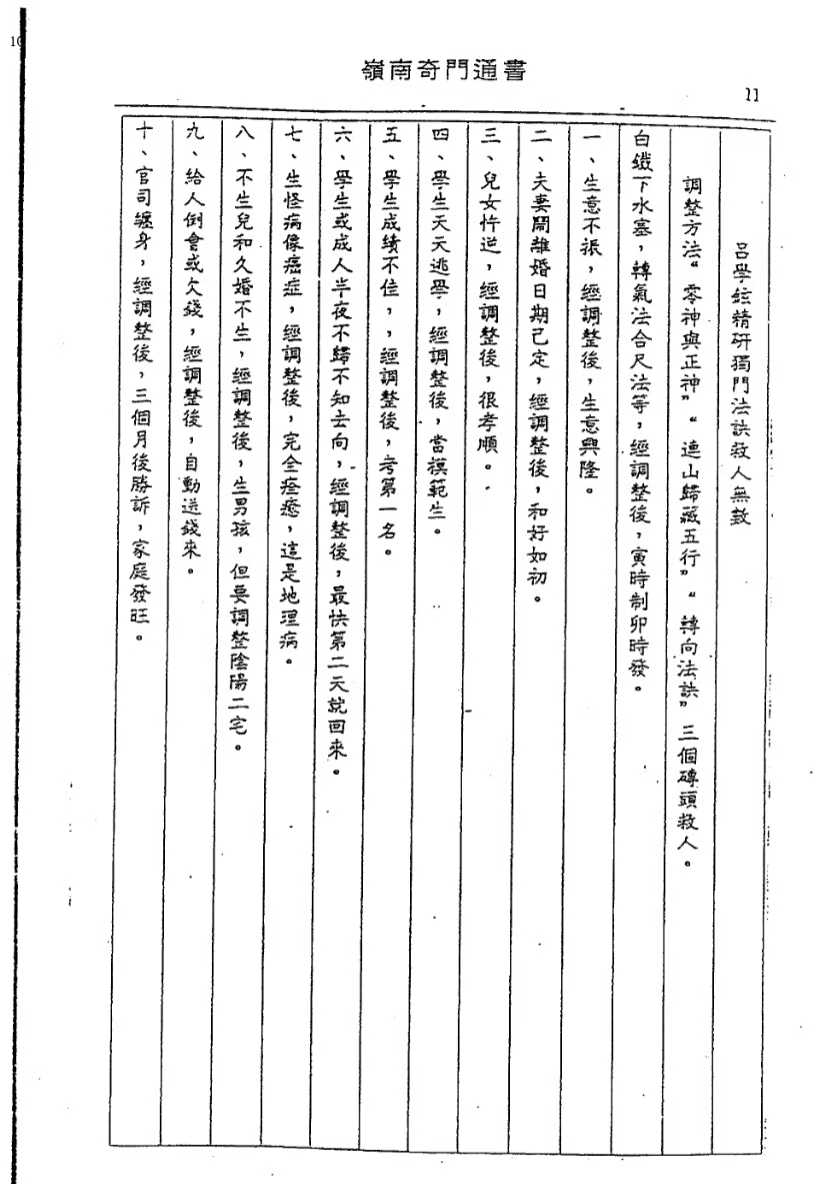 10
嶺南奇門通書
11
呂學鉉精研獨門法訣救人無數
調整方法“零神與正神”“連山歸藏五行”“轉向法訣”三個磚頭救人。
白鐵下水塞，轉氣法合尺法等，經調整後，寅時制卯時發。
一、生意不振，經調整後，生意興隆。
二、夫妻鬧離婚日期己定，經調整後，和好如初。
三、兒女忤逆，經調整後，很孝順。
四、學生天天逃學，經調整後，當模範生。
五、學生成績不佳，，經調整後，考第一名。
六、學生或成人半夜不歸不知去向，經調整後，最快第二天就回來。
七、生怪病像癌症，經調整後，完全痊癒，這是地理病。
八、不生兒和久婚不生，經調整後，生男孩，但要調整陰陽二宅。
九、給人倒會或欠錢，經調整後，自動送錢來。
十、官司纏身，經調整後，三個月後勝訴，家庭發旺。